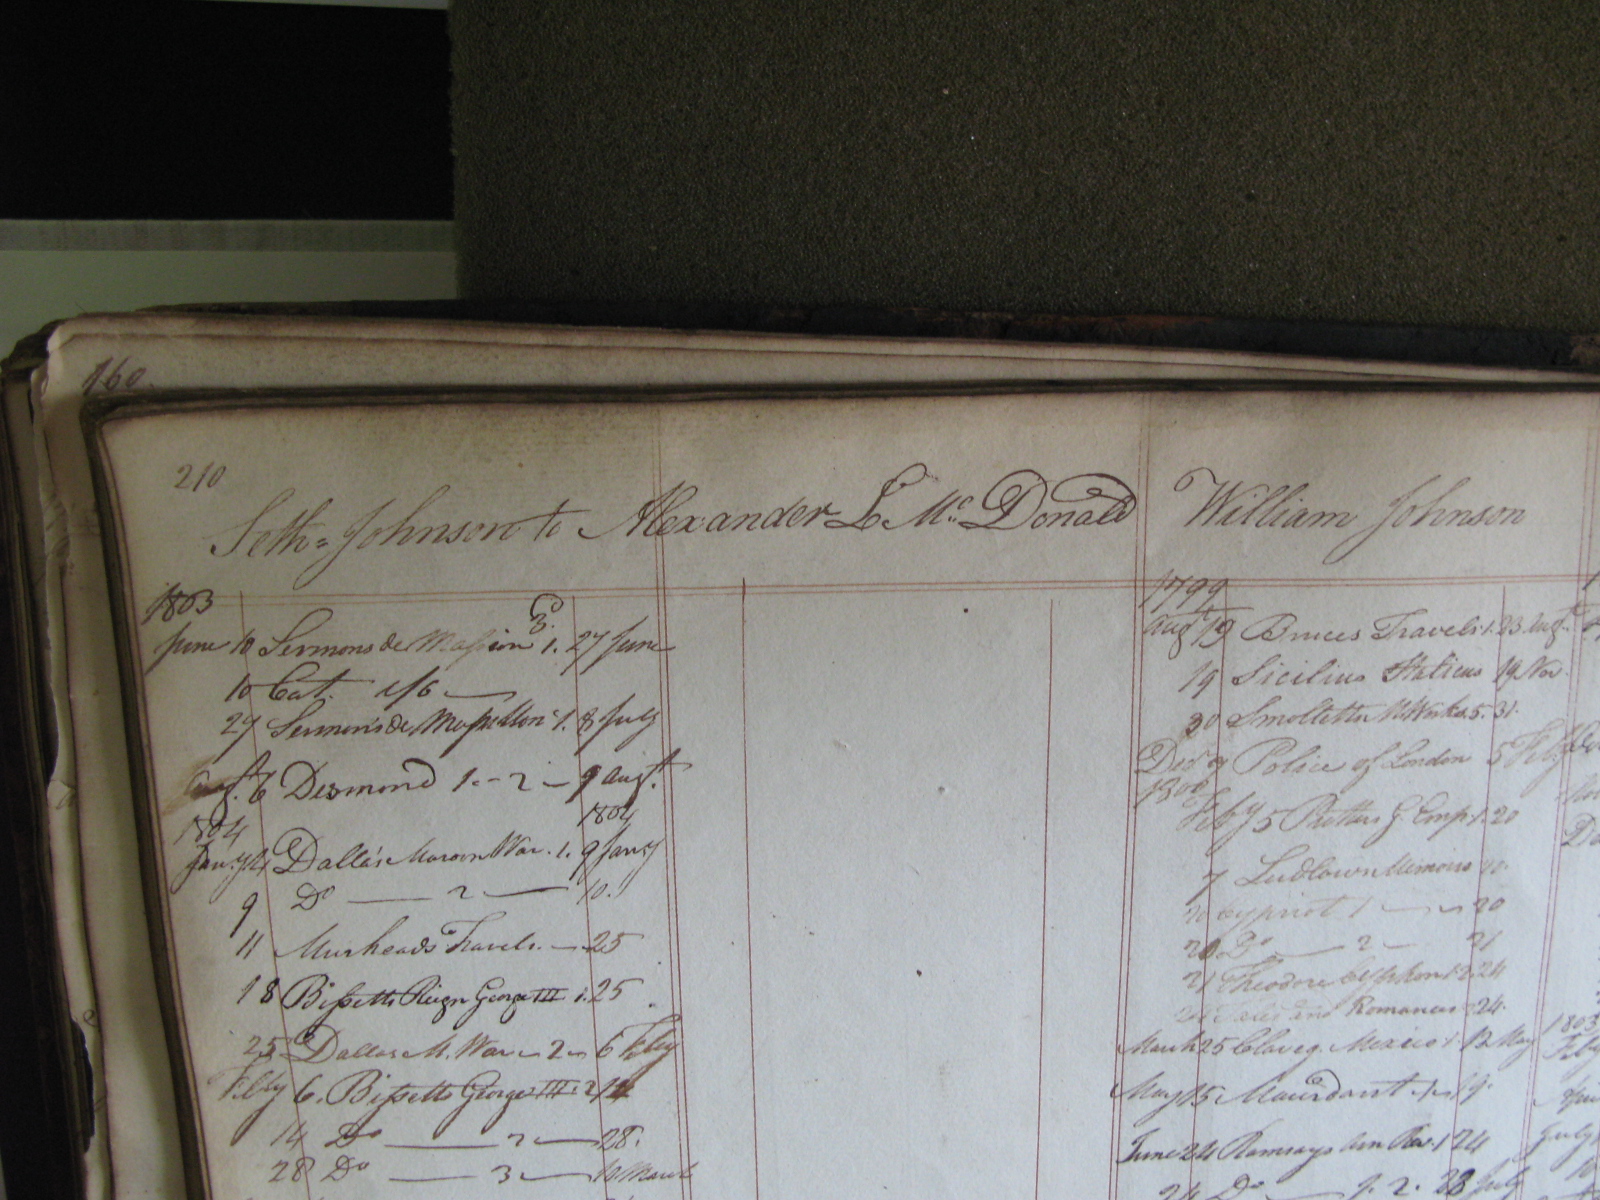 160
210
Seth = Johnson to Alexander L Mc Donald
1803
June 10 Sermons de 1. 27 June
10 Cat.
27 Sermons de 1. 8 July
Augt. 6 Desmond 1 - 2 - 9 augt.
1804 1804
Jany. 4 Dallas Maroon War. 1. 9 Jany
9 Do — 2 — 10.
11 Murheads Travels. — 25
18 Bissetts Reign George III 1. 25
25 Dallas M. War — 2 — 6 Feby
Feby 6. Bissetts George III. 2 14
14 Do — 2 — 28.
28 Do — 3 — 10 March
William Johnson
1799
Augt 19 Bruces Travels 1. 23 Augt.
19 Sicilius Italicus 19 Nov.
20 Smolletts Works. 5. 31.
Decr 9 Police of London 5 Feby
1800
Feby 5 Putters G. Emp. 1. 20
7 Ludlows Memoirs
20 Cypriot 1 — 20
20 Do — 2 — 21
21 Theodore Cyphon 1. 2. 24
Tales and Romances 24.
March 25 Claveg. Mexico 1. 12 May
May 15 Maurdant 19.
June 24 Ramsays Am Rev. 1 24
24 Do — 1. 2. 28 July
1803